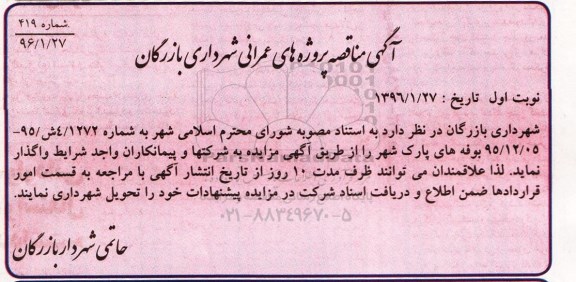 شماره ۴۱۹
۹۶/۱/۲۷
آگهی مناقصه پروژه های عمرانی شهرداری بازرگان
نوبت اول تاریخ : ۱۳۹۶/۱/۲۷
شهرداری بازرگان در نظر دارد به استناد مصوبه شورای محترم اسلامی شهر به شماره ۴/۱۲۷۲ش/۹۵-
۹۵/۱۲/۰۵ بوفه های پارک شهر را از طریق آگهی مزایده به شرکتها و پیمانکاران واجد شرایط واگذار
نماید. لذا علاقمندان می توانند ظرف مدت ۱۰ روز از تاریخ انتشار آگهی با مراجعه به قسمت امور
قراردادها ضمن اطلاع و دریافت اسناد شرکت در مزایده پیشنهادات خود را تحویل شهرداری نمایند.
۰۲۱-۸۸۳۴۹۶۷۰-۵
حاتمی شهردار بازرگان